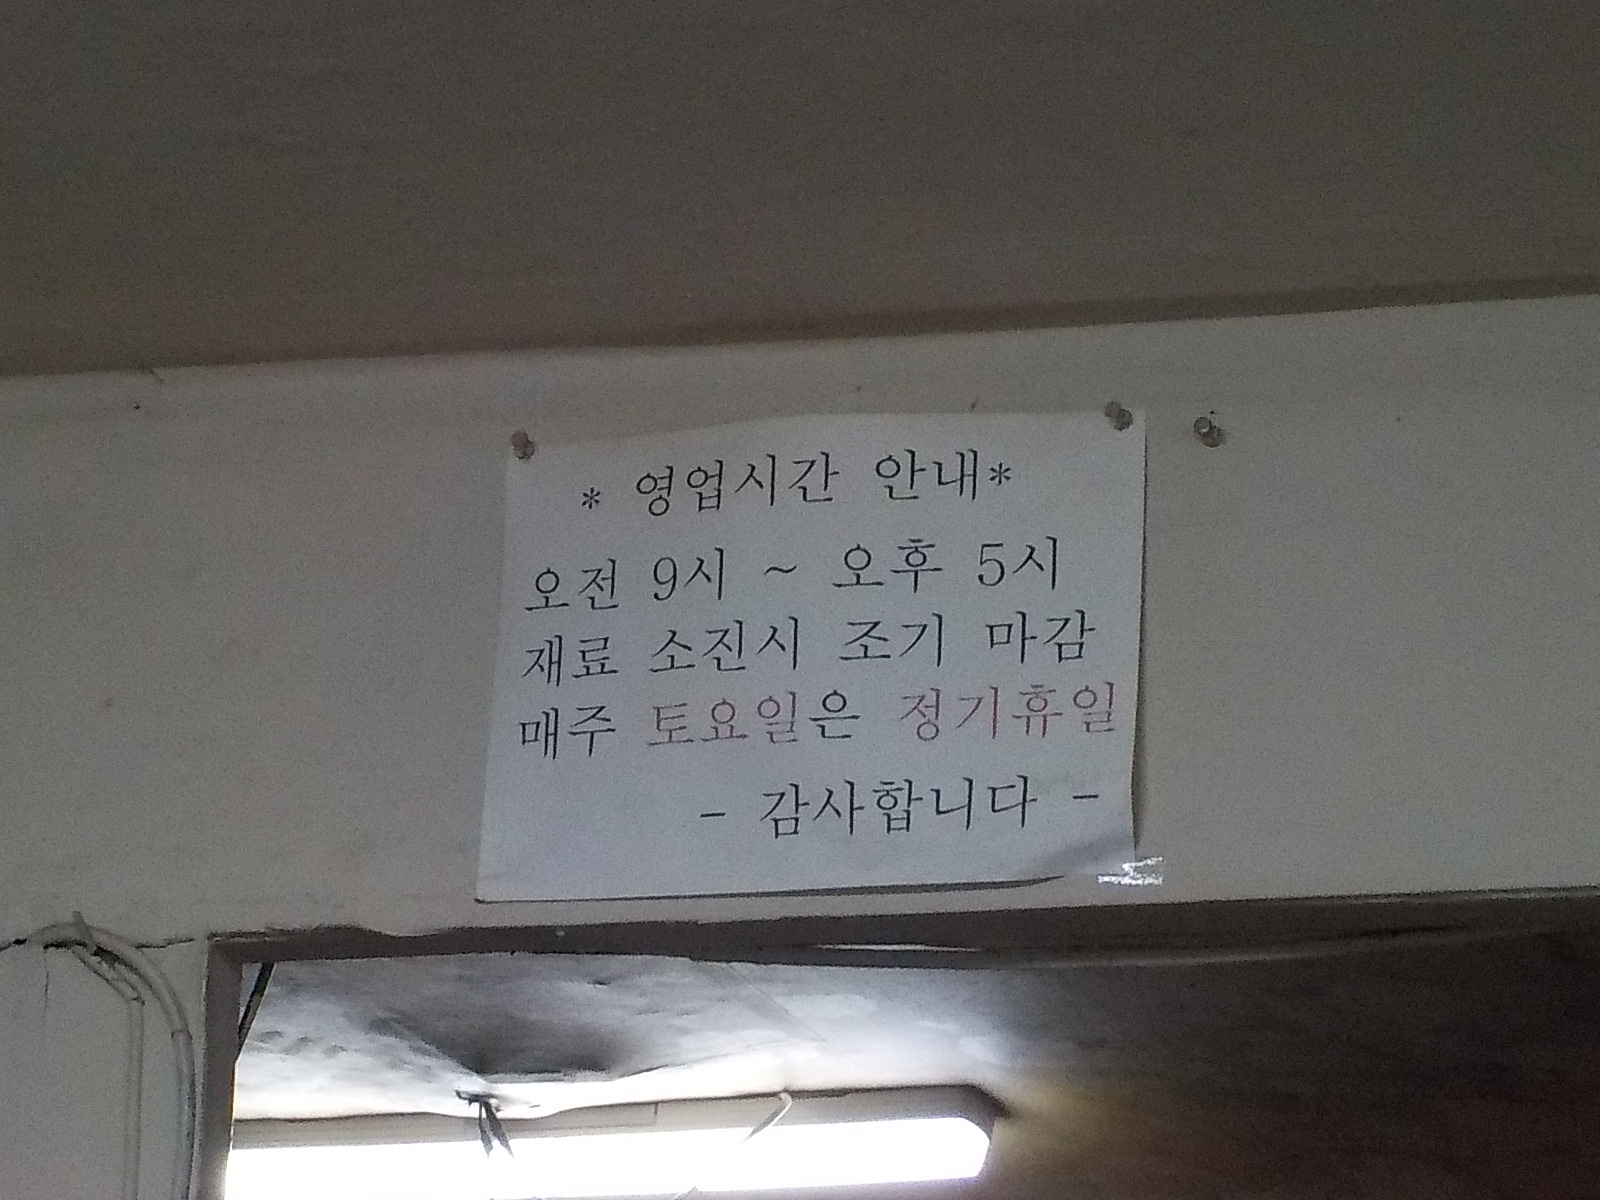 * 영업시간 안내*
오전 9시 ~ 오후 5시
재료 소진시 조기 마감
매주 토요일은 정기휴일
- 감사합니다 -